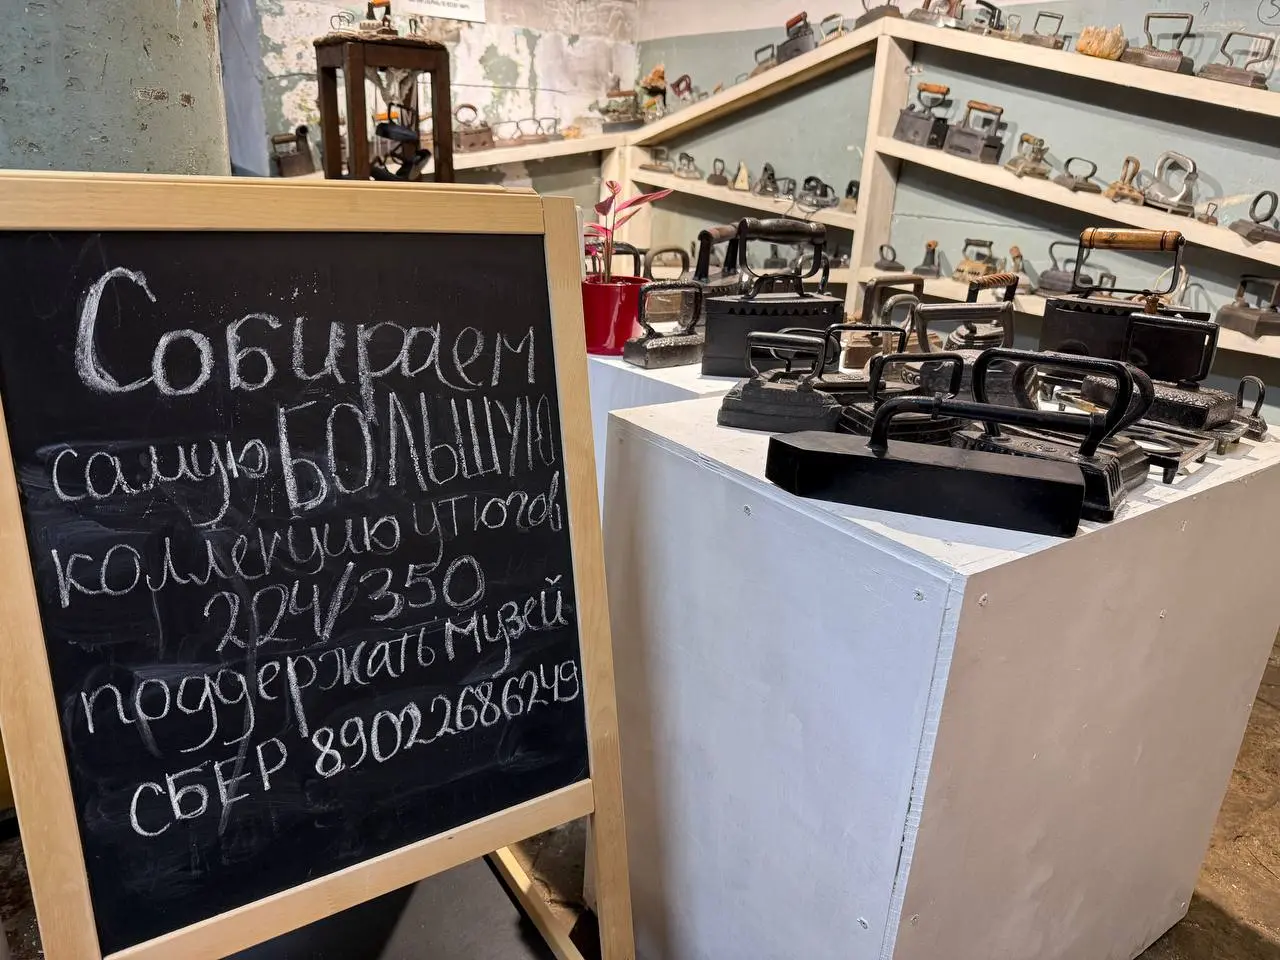 Собираем
самую БОЛЬШУЮ
коллекцию утюгов
224/350
поддержать музей
СБЕР 89022686249